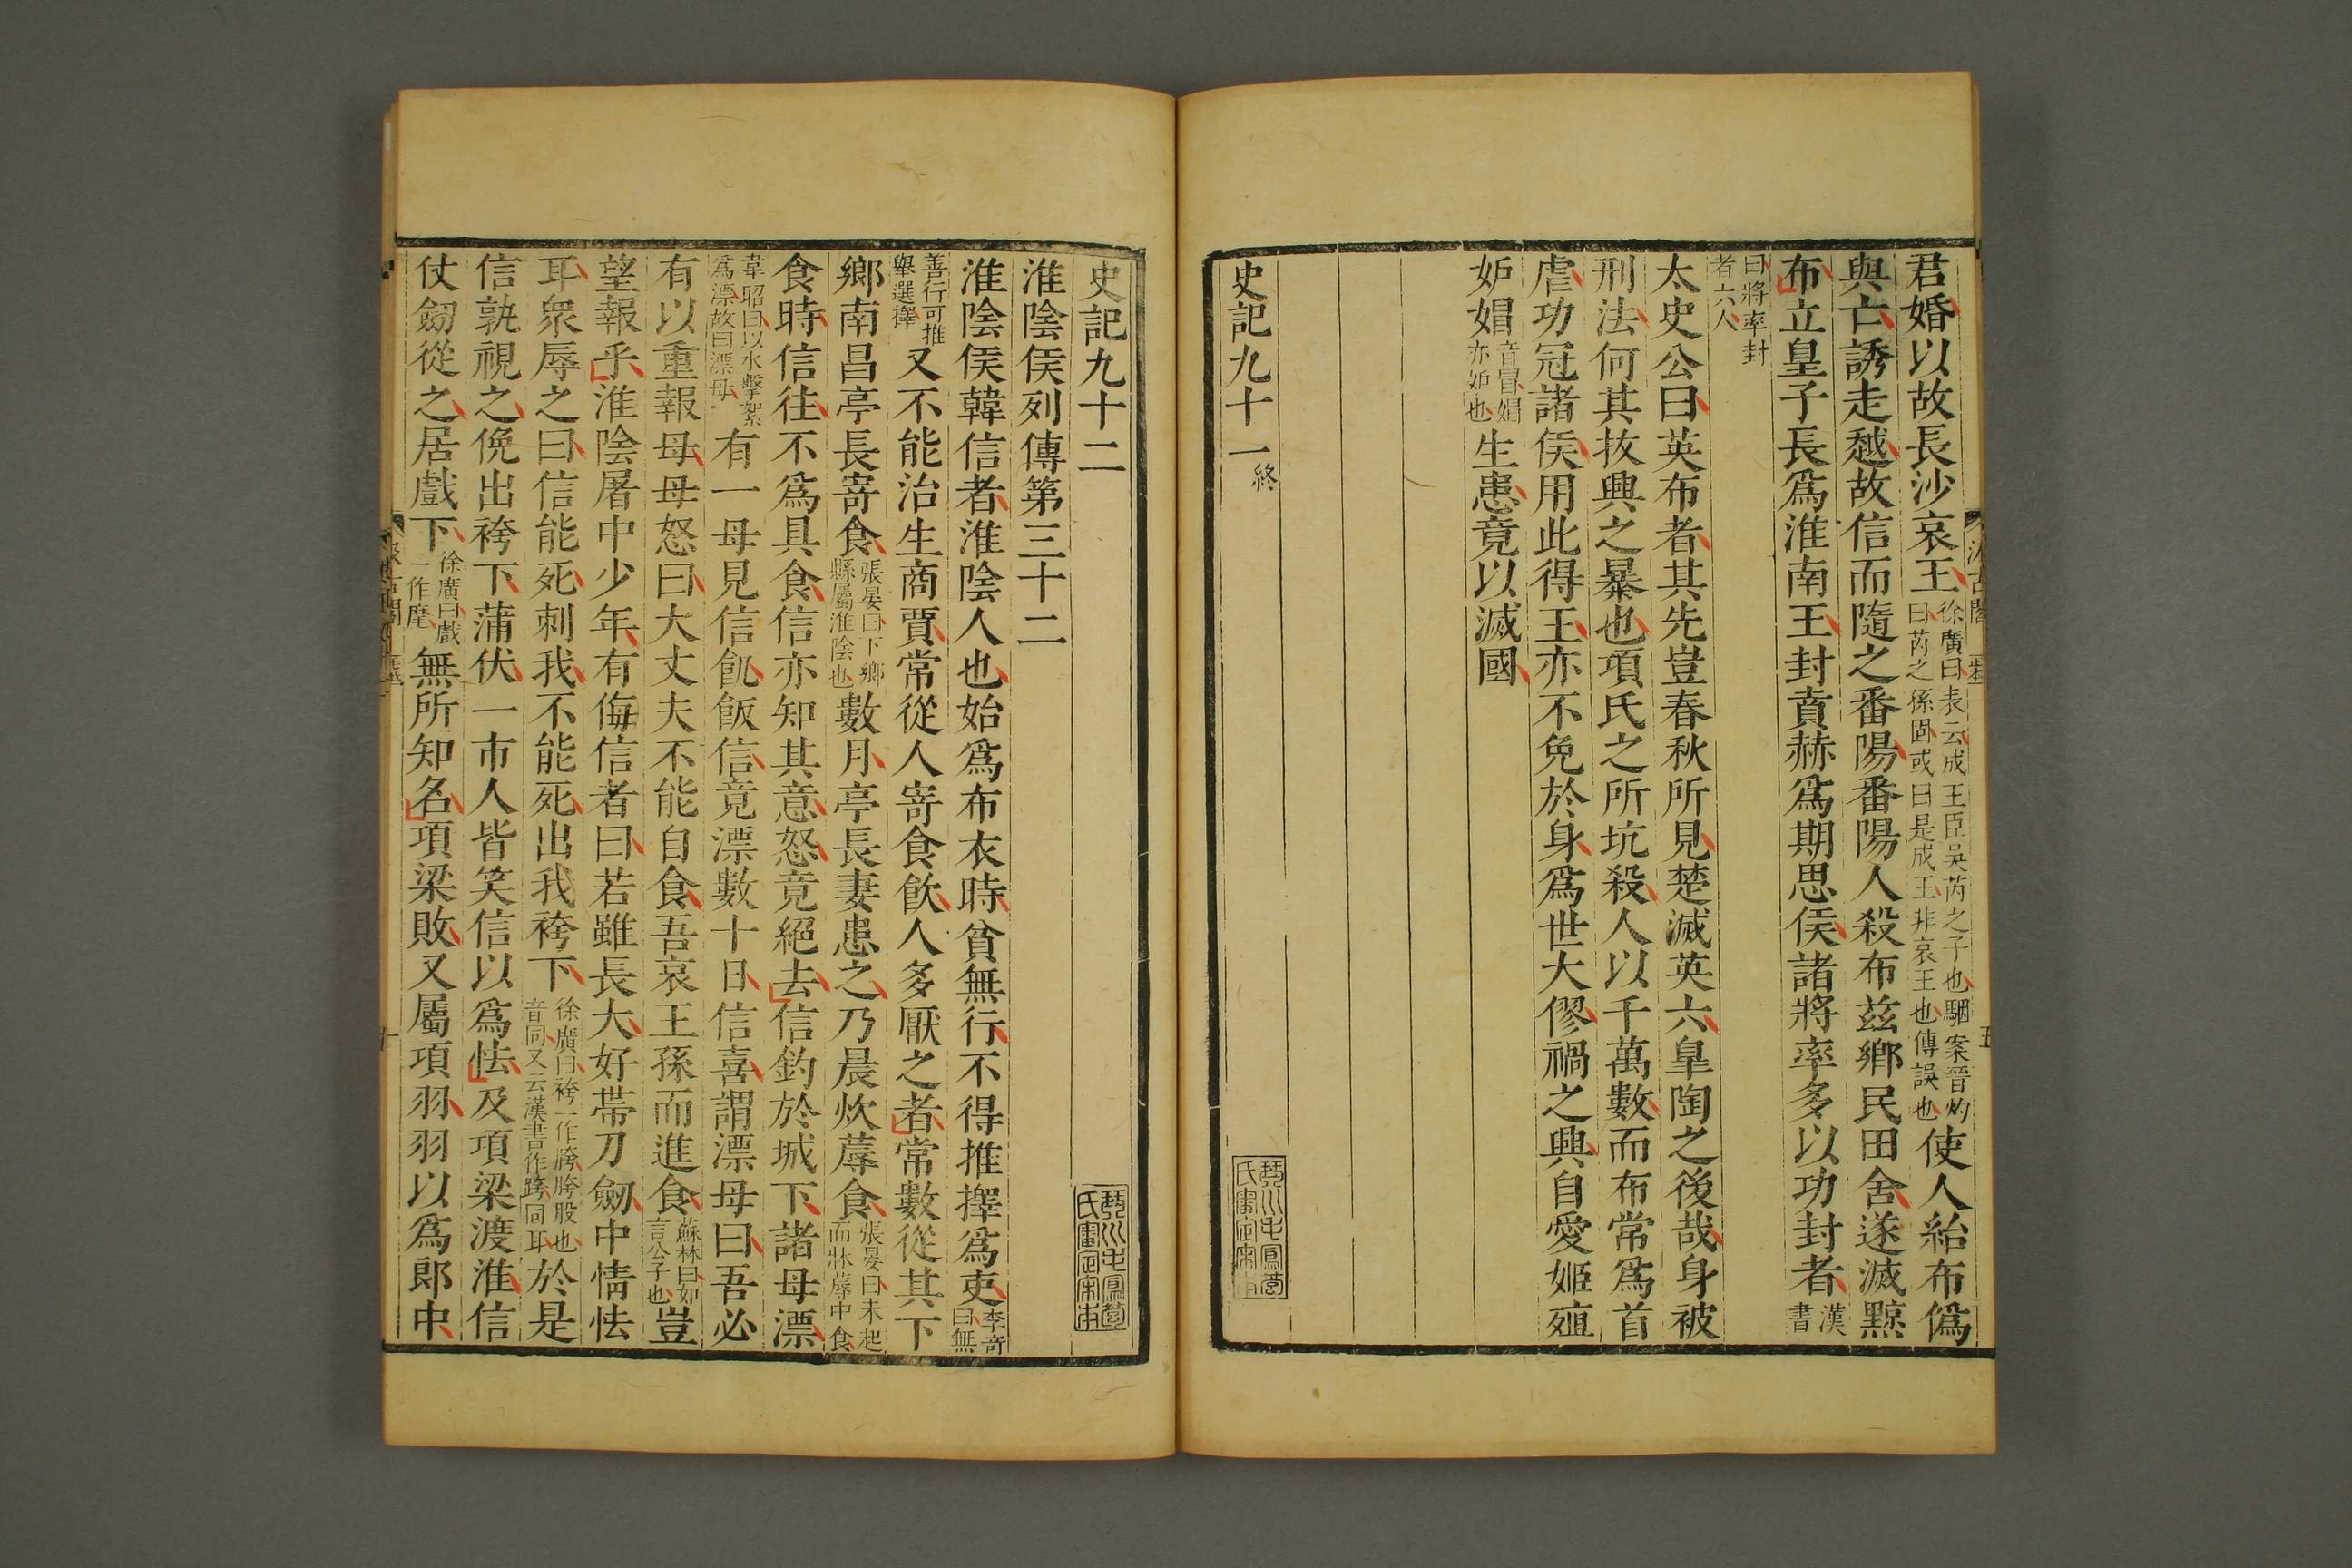 君婚以故長沙哀王徐廣曰表云成王臣吳芮之子也駰案晉灼曰芮之孫固或曰是成王非哀王也傳誤也使人紿布僞
與亡誘走越故信而隨之番陽番陽人殺布茲鄉民田舍遂滅黥
布立皇子長爲淮南王封賁赫爲期思侯諸將率多以功封者漢書
曰將率封者六人
太史公曰英布者其先豈春秋所見楚滅英六臯陶之後哉身被
刑法何其拔興之暴也項氏之所坑殺人以千萬數而布常爲首
虐功冠諸侯用此得王亦不免於身爲世大僇禍之興自愛姬殖
妒媢音冒媢亦妒也生患竟以滅國
史記九十一終
琴川毛鳳苞氏審定宋本
史記九十二
琴川毛鳳苞氏審定宋本
淮陰侯列傳第三十二
淮陰侯韓信者淮陰人也始爲布衣時貧無行不得推擇爲吏李奇曰無
善行可推舉選擇又不能治生商賈常從人寄食飲人多厭之者常數從其下
鄉南昌亭長寄食張晏曰下鄉縣屬淮陰也數月亭長妻患之乃晨炊蓐食張晏曰未起而牀蓐中食
食時信往不爲具食信亦知其意怒竟絕去信釣於城下諸母漂
韋昭曰以水擊絮爲漂故曰漂母有一母見信飢飯信竟漂數十日信喜謂漂母曰吾必
有以重報母母怒曰大丈夫不能自食吾哀王孫而進食蘇林曰如言公子也豈
望報乎淮陰屠中少年有侮信者曰若雖長大好帶刀劒中情怯
耳衆辱之曰信能死刺我不能死出我袴下徐廣曰袴一作胯胯股也音同又云漢書作跨同耳於是
信孰視之俛出袴下蒲伏一市人皆笑信以爲怯及項梁渡淮信
仗劒從之居戲下徐廣曰戲一作麾無所知名項梁敗又屬項羽羽以爲郎中